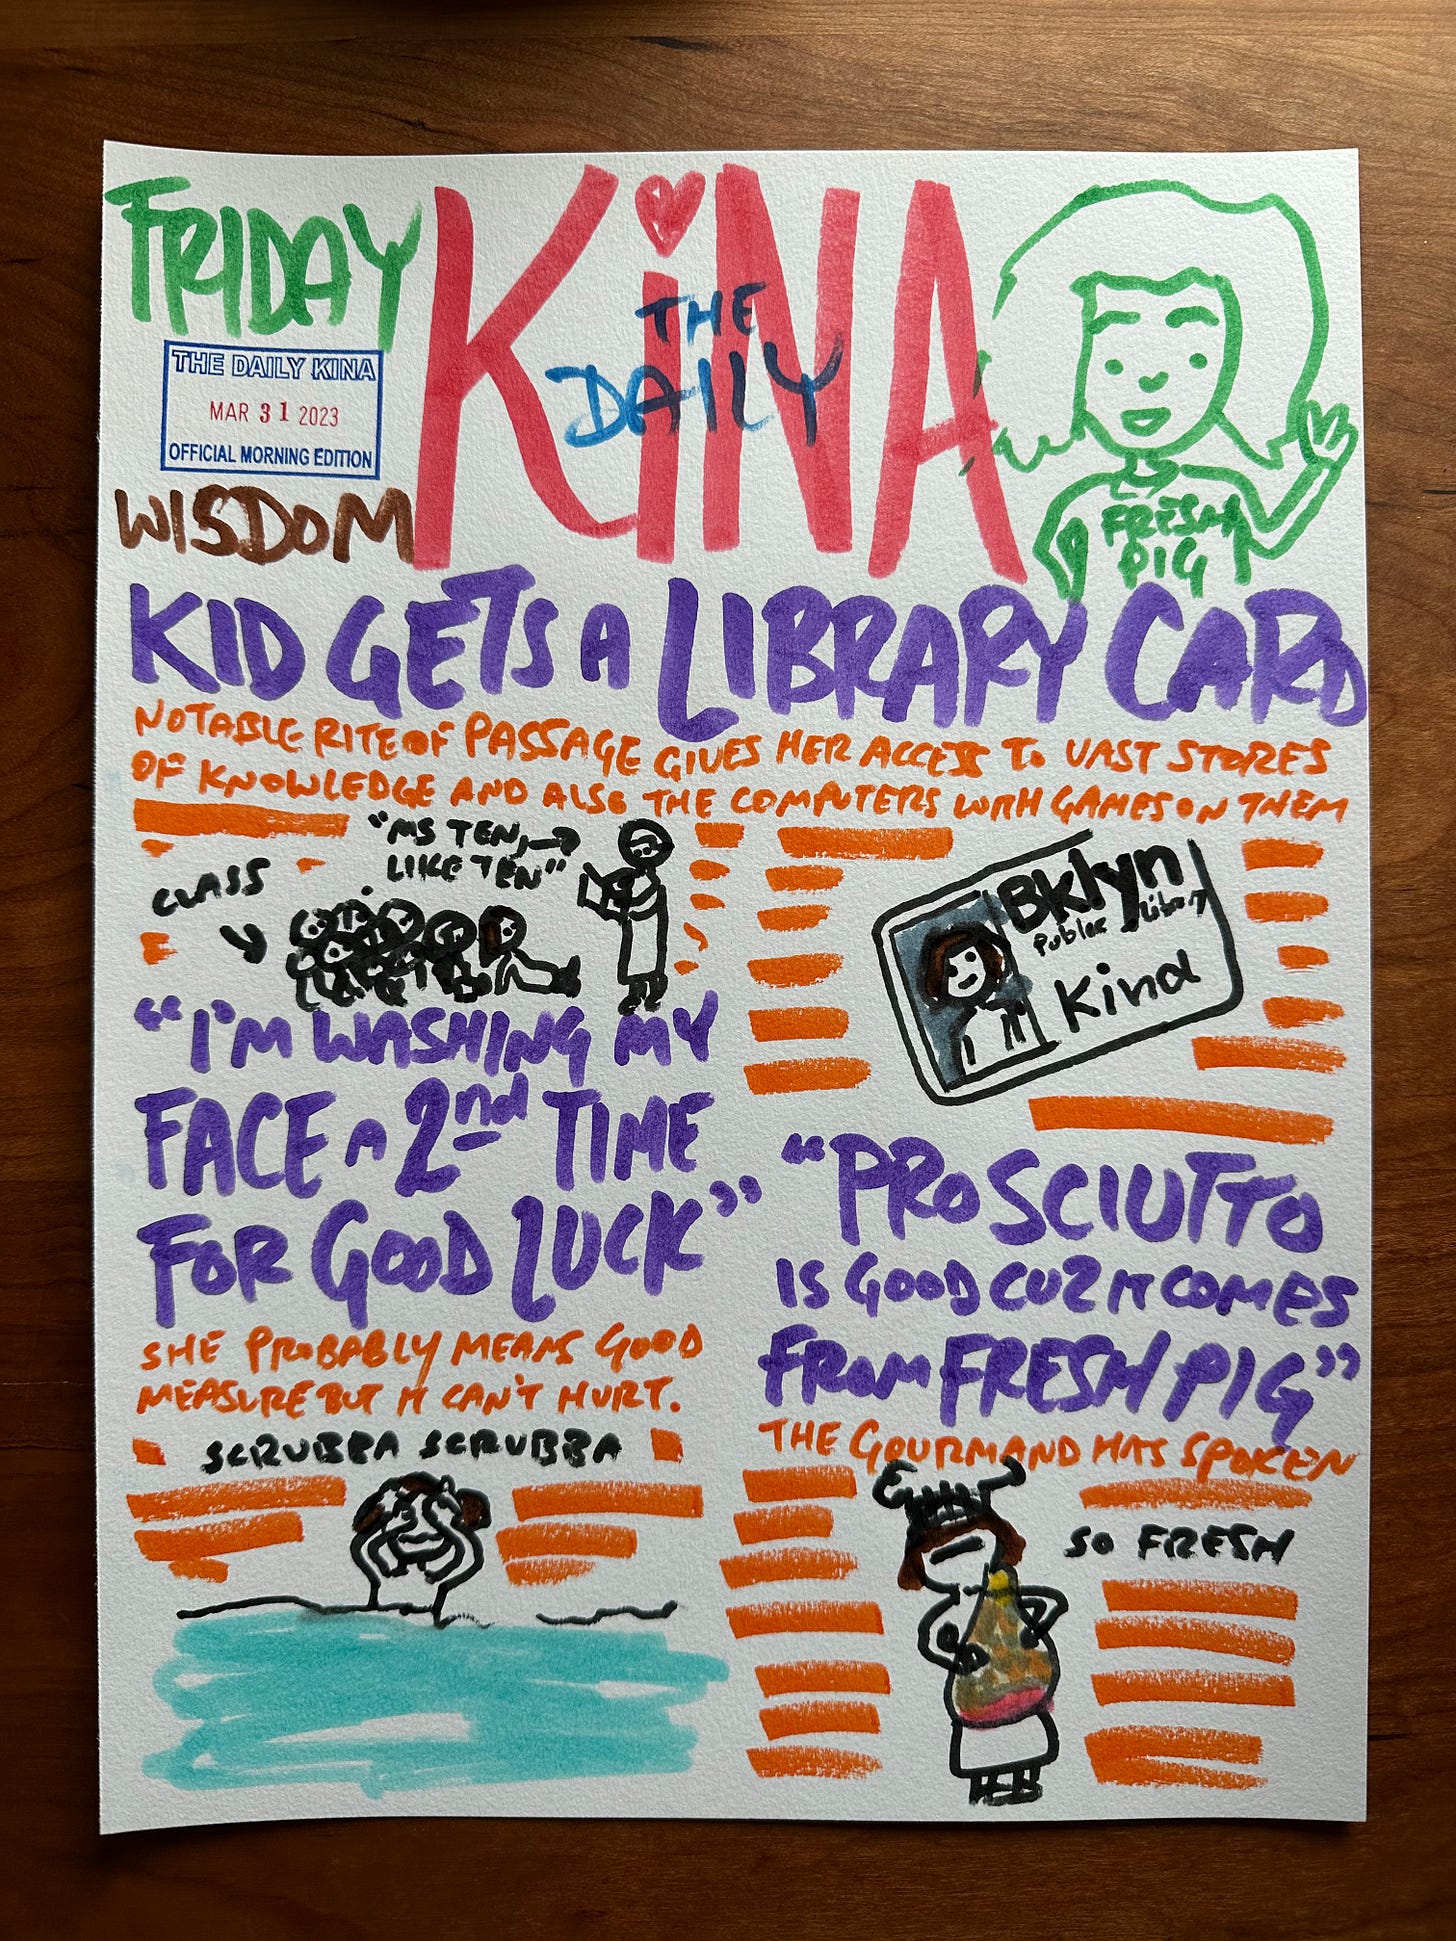 FRIDAY
THE DAILY KINA
MAR 31 2023
OFFICIAL MORNING EDITION
WISDOM
THE
DAILY
KiNA
FRESH
PIG
KID GETS A LIBRARY CARD
NOTABLE RITE OF PASSAGE GIVES HER ACCESS TO VAST STORES
OF KNOWLEDGE AND ALSO THE COMPUTERS WITH GAMES ON THEM
"MS TEN,
LIKE TEN"
CLASS
Bklyn
Public Library
Kina
"I'M WASHING MY
FACE A 2nd TIME
FOR GOOD LUCK"
SHE PROBABLY MEANS GOOD
MEASURE BUT IT CAN'T HURT.
SCRUBBA SCRUBBA
"PROSCIUTTO
IS GOOD CUZ IT COMES
FROM FRESH PIG"
THE GOURMAND HAS SPOKEN
SO FRESH